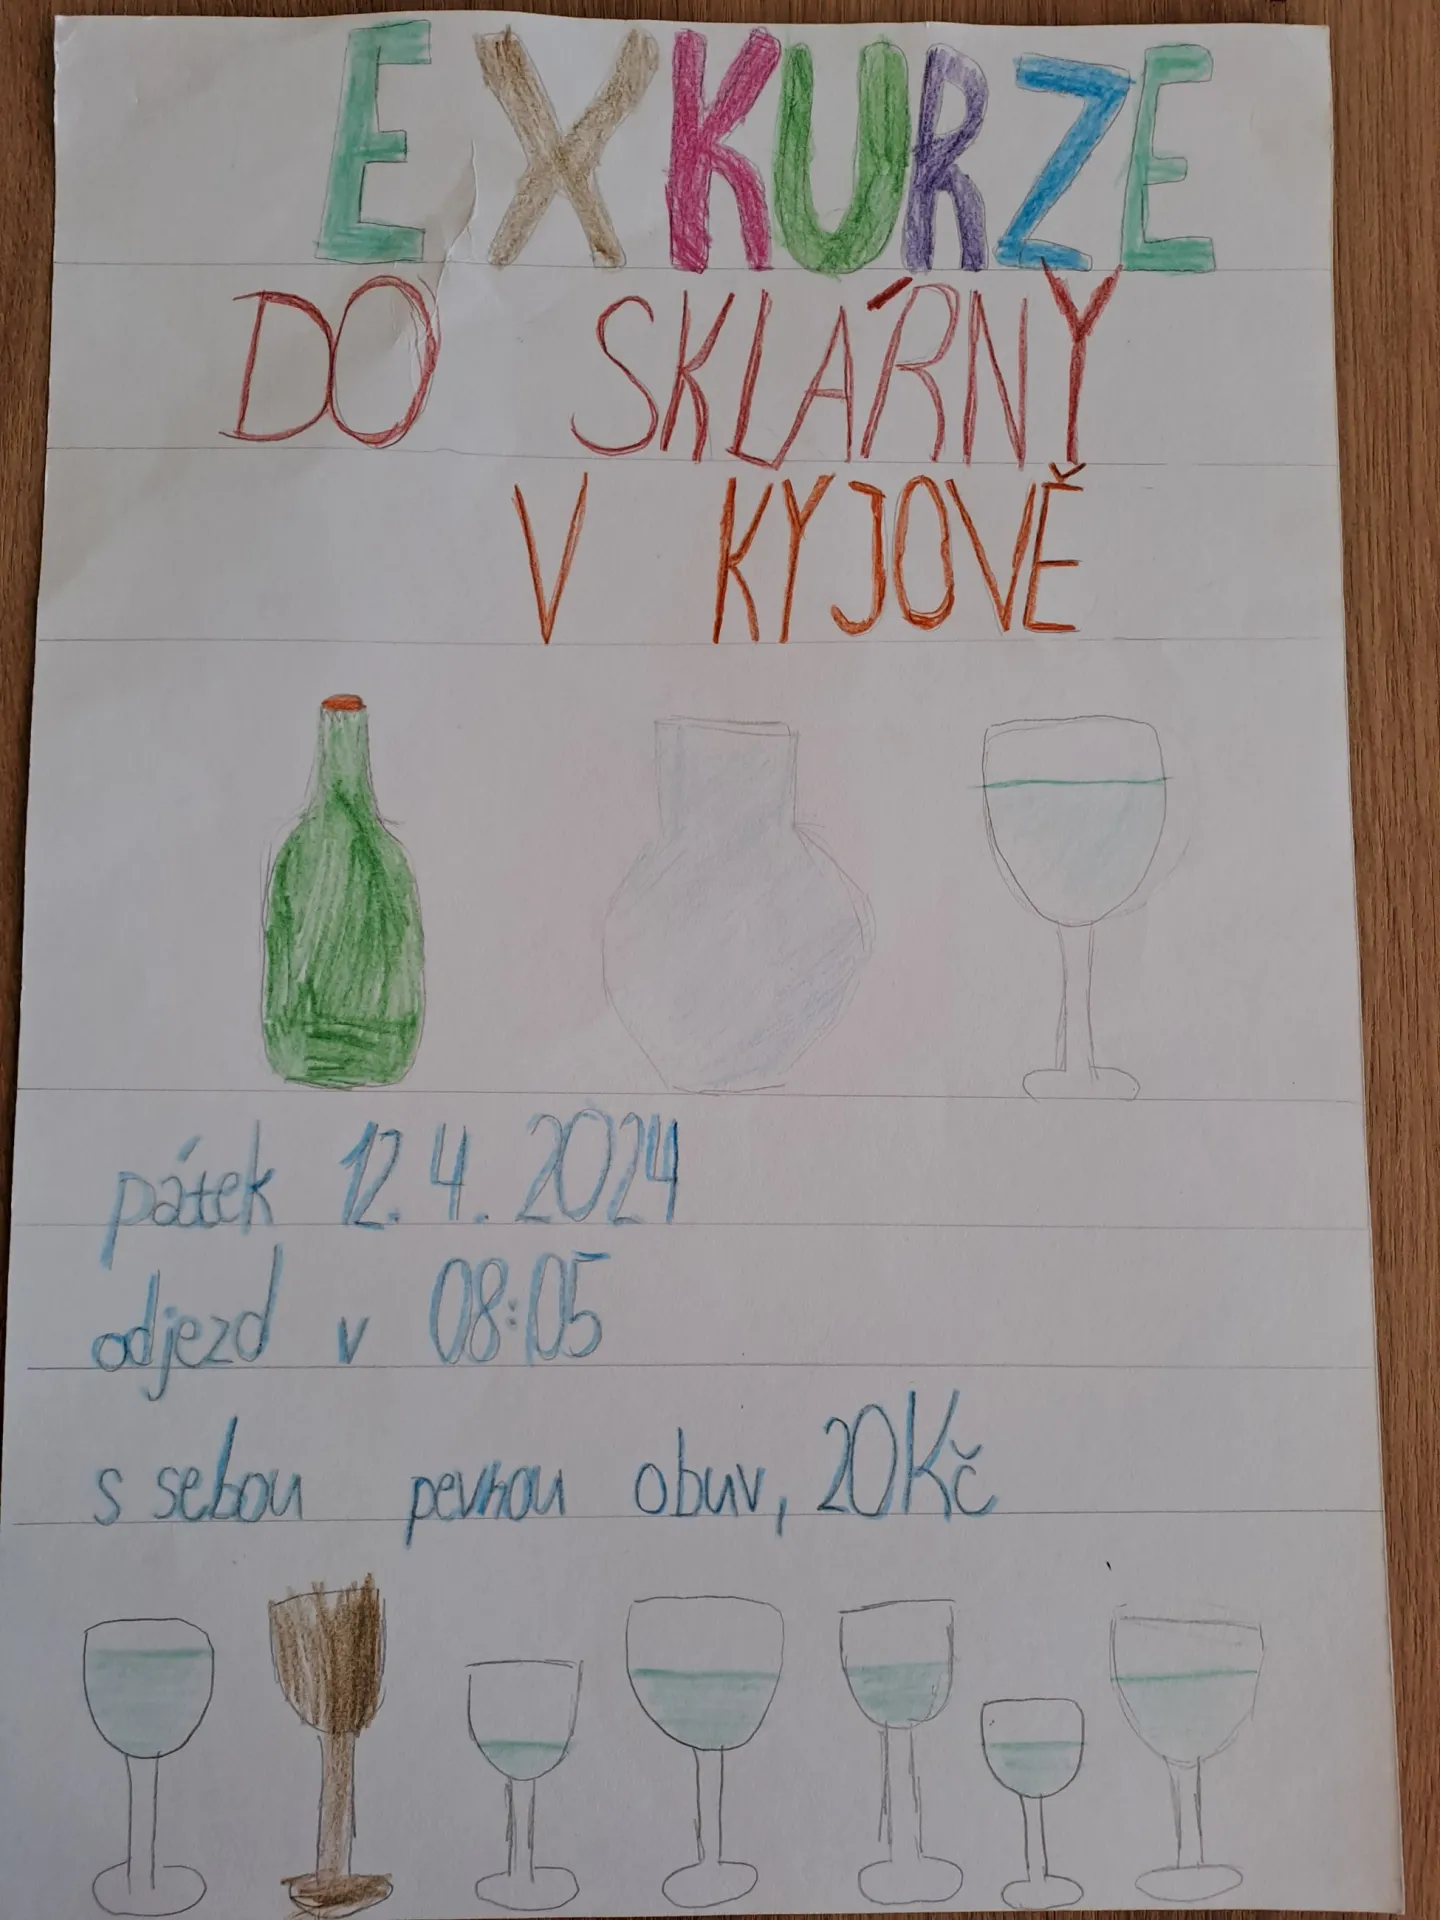 EXKURZE
DO SKLÁRNY
V KYJOVĚ
pátek 12.4.2024
odjezd v 08:05
s sebou pevnou obuv, 20Kč